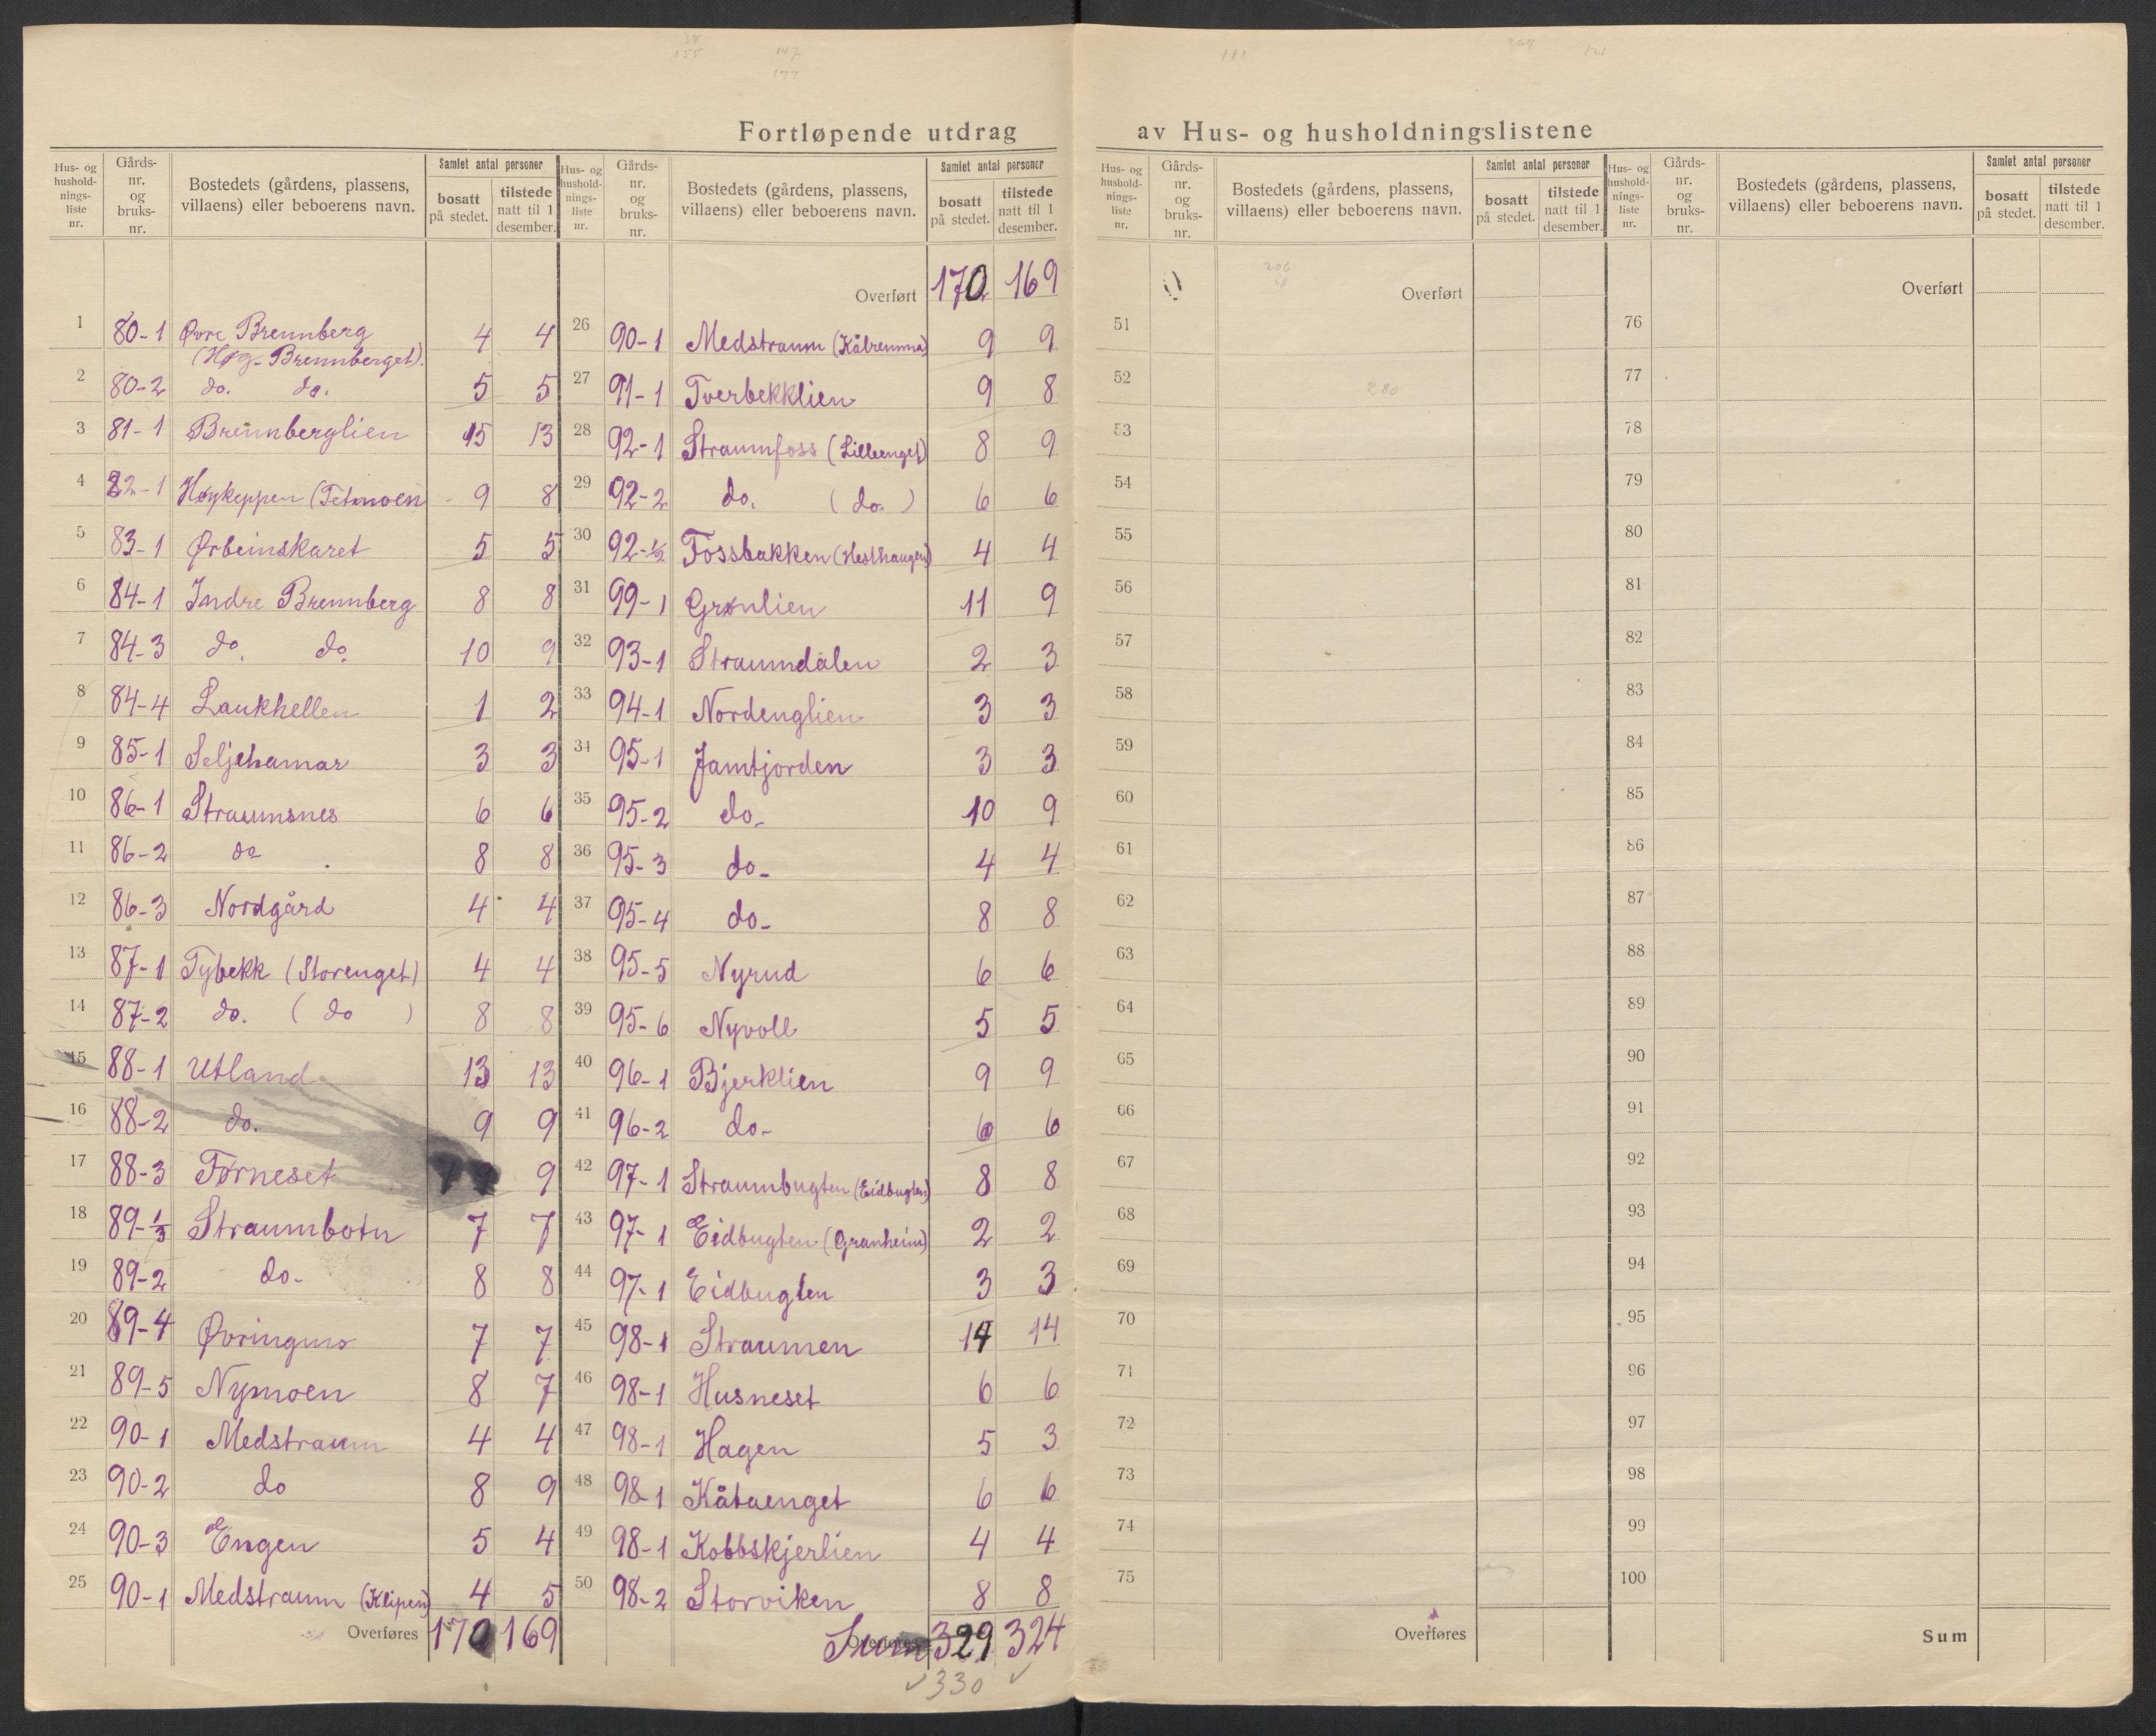 Fortløpende utdrag av Hus- og husholdningslistene
Hus- og hushold-nings-liste nr. | Gårds-nr. og bruks-nr. | Bostedets (gårdens, plassens, villaens) eller beboerens navn. | Samlet antal personer bosatt på stedet. | tilstede natt til 1 desember.
1 80-1 Øvre Brennberg (Høg-Brennberget). 4 4
2 80-2 do. do. 5 5
3 81-1 Brennberglien 15 13
4 82-1 Høykeppen (Tetmoen 9 8
5 83-1 Ørbeinskaret 5 5
6 84-1 Indre Brennberg 8 8
7 84-3 do. do. 10 9
8 84-4 Laukhellen 1 2
9 85-1 Seljehamar 3 3
10 86-1 Straumsnes 6 6
11 86-2 do 8 8
12 86-3 Nordgård 4 4
13 87-1 Tybekk (Storenget) 4 4
14 87-2 do. (do) 8 8
15 88-1 Utland 13 13
16 88-2 do. 9 9
17 88-3 Førneset 9
18 89-1/3 Straumbotn 7 7
19 89-2 do- 8 8
20 89-4 Øvringmo 7 7
21 89-5 Nymoen 8 7
22 90-1 Medstraum 4 4
23 90-2 do 8 9
24 90-3 Engen 5 4
25 90-1 Medstraum (Klipen) 4 5
Overføres 170 169
Hus- og hushold-nings-liste nr. | Gårds-nr. og bruks-nr. | Bostedets (gårdens, plassens, villaens) eller beboerens navn. | Samlet antal personer bosatt på stedet. | tilstede natt til 1 desember.
Overført 170 169
26 90-1 Medstraum (Kålremma) 9 9
27 91-1 Tverbekklien 9 8
28 92-1 Straumfoss (Lilleenget) 8 9
29 92-2 do. (do.) 6 6
30 92-1/2 Fossbakken (Hesthaugen) 4 4
31 99-1 Grønlien 11 9
32 93-1 Straumdalen 2 3
33 94-1 Nordenglien 3 3
34 95-1 Jamtjorden 3 3
35 95-2 do- 10 9
36 95-3 do- 4 4
37 95-4 do- 8 8
38 95-5 Nyrud 6 6
39 95-6 Nyvoll 5 5
40 96-1 Bjerklien 9 9
41 96-2 do- 6 6
42 97-1 Straumbugten (Eidbugten) 8 8
43 97-1 Eidbugten (Granheim) 2 2
44 97-1 Eidbugten 3 3
45 98-1 Straumen 14 14
46 98-1 Husneset 6 6
47 98-1 Hagen 5 3
48 98-1 Kåtaenget 6 6
49 98-1 Kobbskjerlien 4 4
50 98-2 Storviken 8 8
Overføres Sum 329 324
330
Hus- og hushold-nings-liste nr. | Gårds-nr. og bruks-nr. | Bostedets (gårdens, plassens, villaens) eller beboerens navn. | Samlet antal personer bosatt på stedet. | tilstede natt til 1 desember.
Overført
51
52
53
54
55
56
57
58
59
60
61
62
63
64
65
66
67
68
69
70
71
72
73
74
75
Overføres
Hus- og hushold-nings-liste nr. | Gårds-nr. og bruks-nr. | Bostedets (gårdens, plassens, villaens) eller beboerens navn. | Samlet antal personer bosatt på stedet. | tilstede natt til 1 desember.
Overført
76
77
78
79
80
81
82
83
84
85
86
87
88
89
90
91
92
93
94
95
96
97
98
99
100
Sum